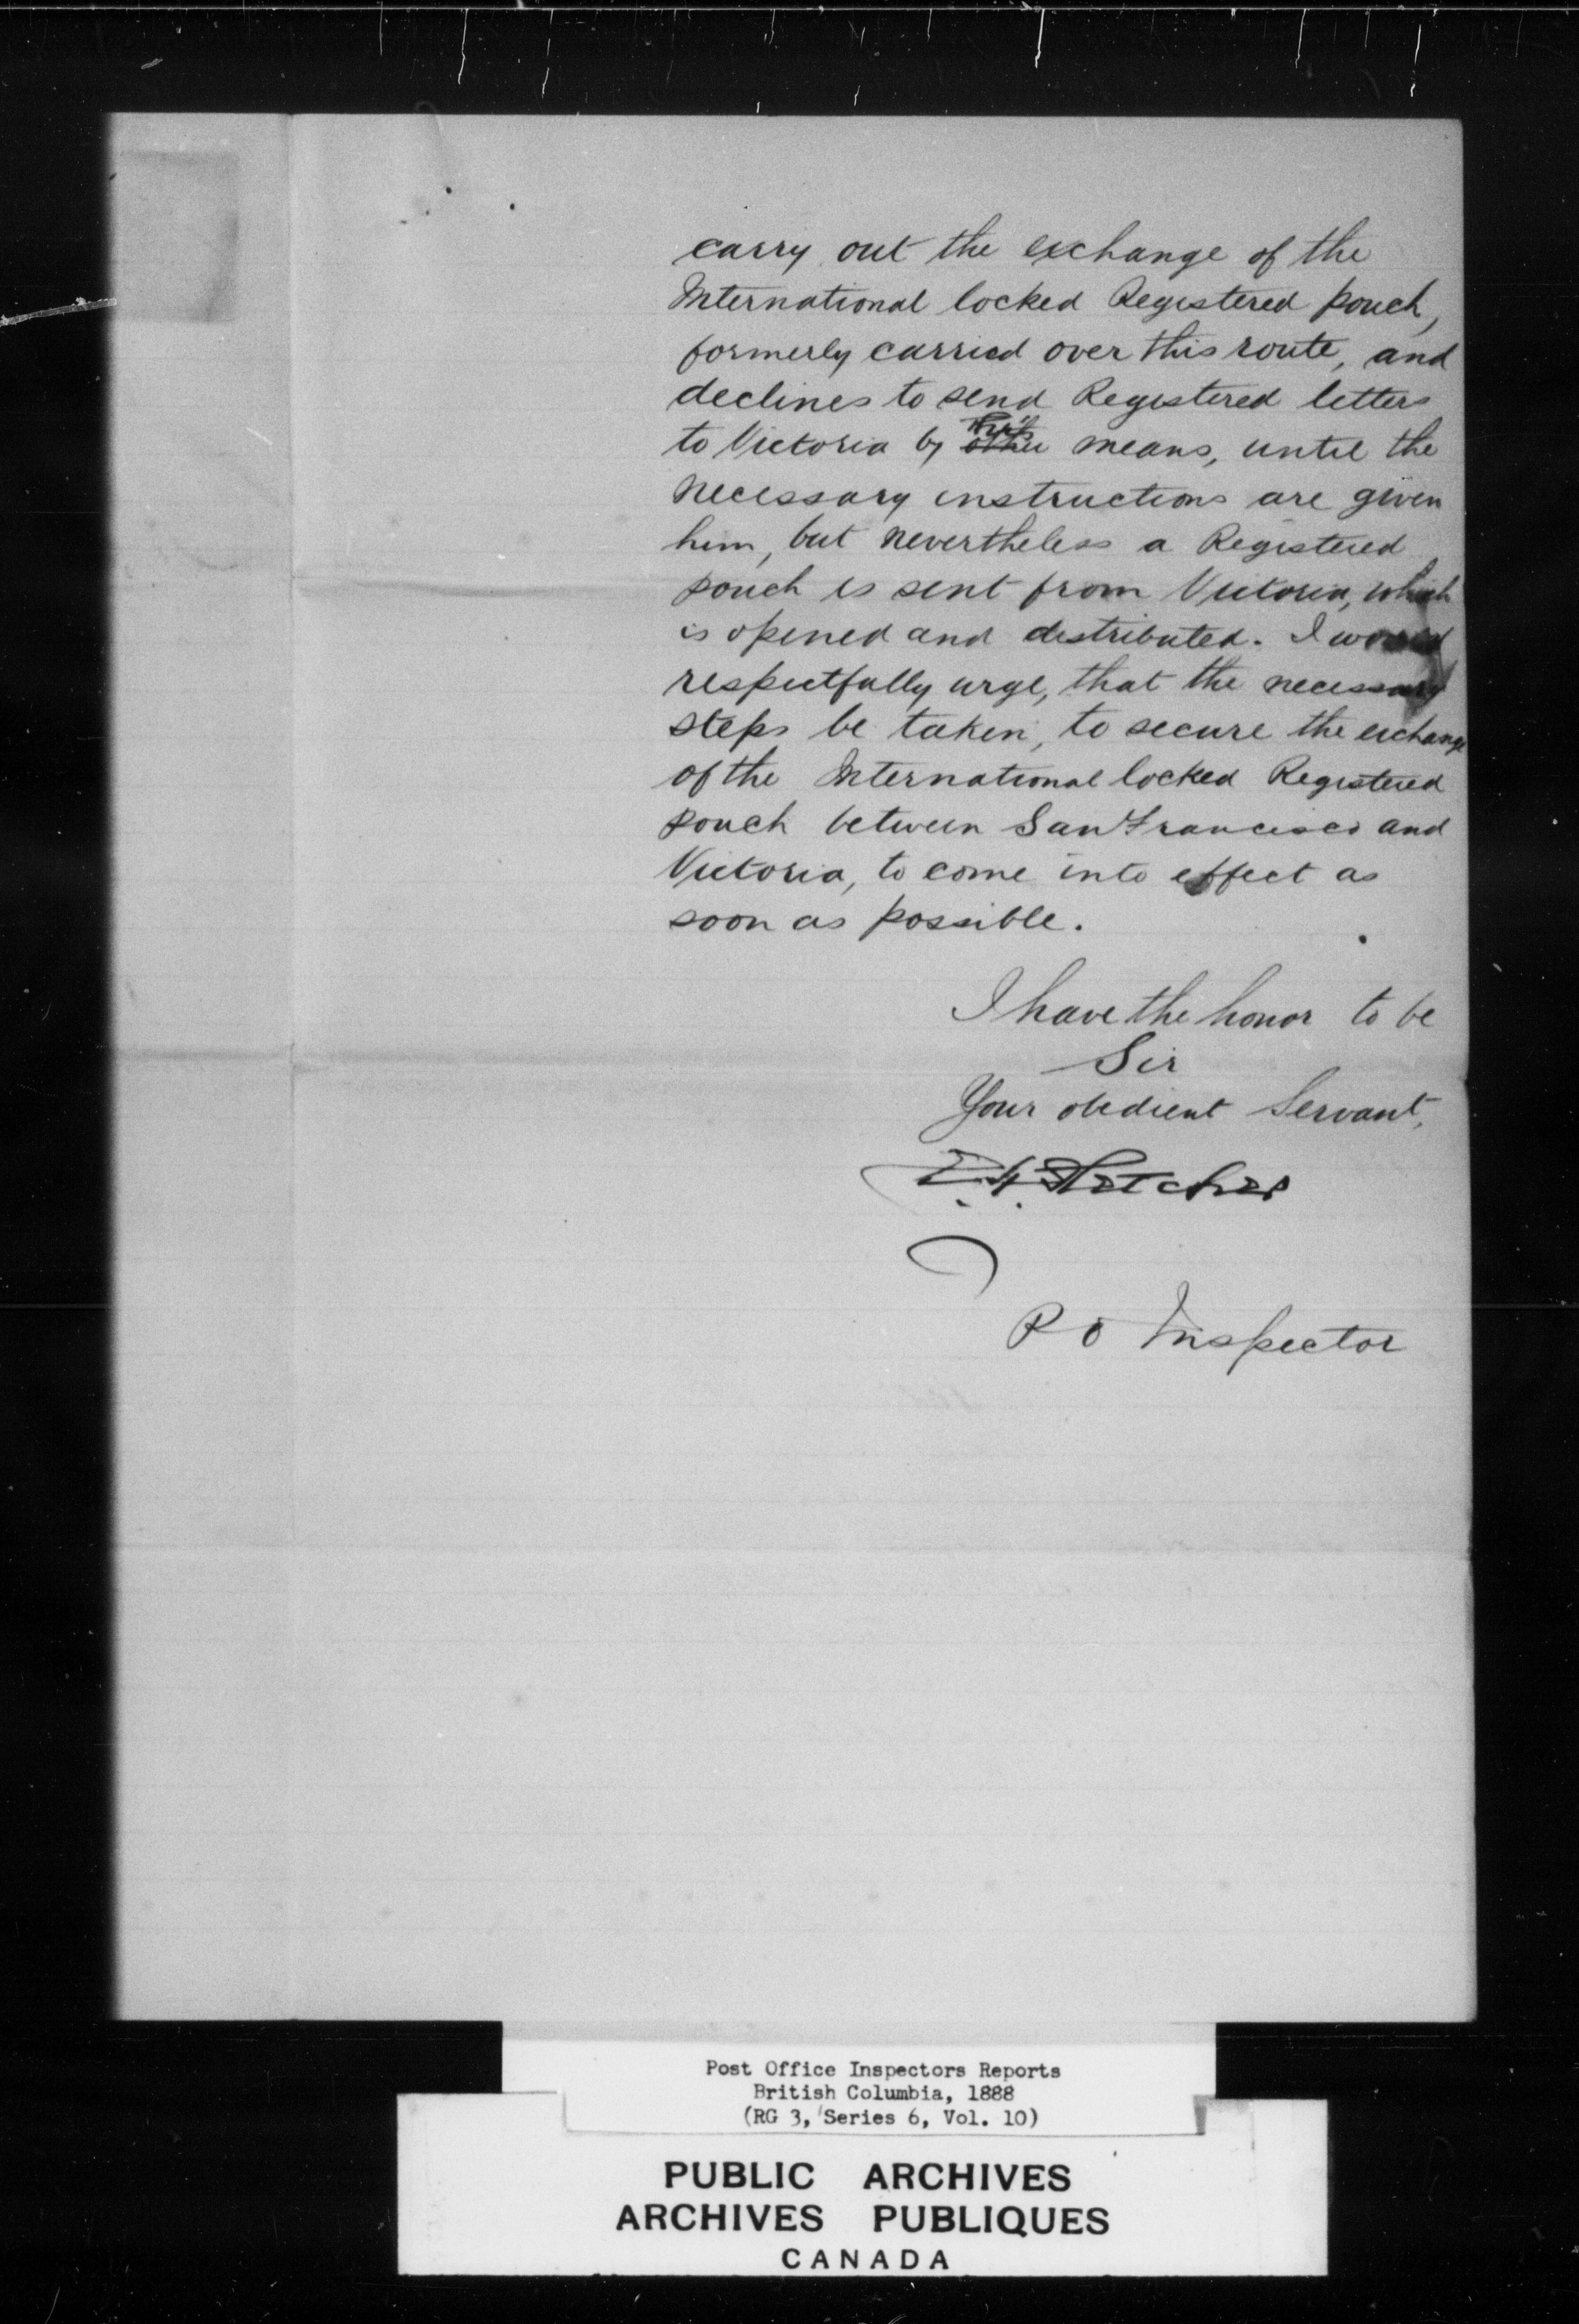 carry out the exchange of the
International locked Registered pouch,
formerly carried over this route, and
declines to send Registered letters
to Victoria by this means, until the
necessary instructions are given
him, but nevertheless a Registered
pouch is sent from Victoria, which
is opened and distributed. I would
respectfully urge, that the necessary
steps be taken, to secure the exchange
of the International locked Registered
pouch between San Francisco and
Victoria, to come into effect as
soon as possible.
I have the honor to be
Sir
Your obedient Servant,
E.H. Fletcher
P O Inspector
Post Office Inspectors Reports
British Columbia, 1888
(RG 3, Series 6, Vol. 10)
PUBLIC ARCHIVES
ARCHIVES PUBLIQUES
CANADA